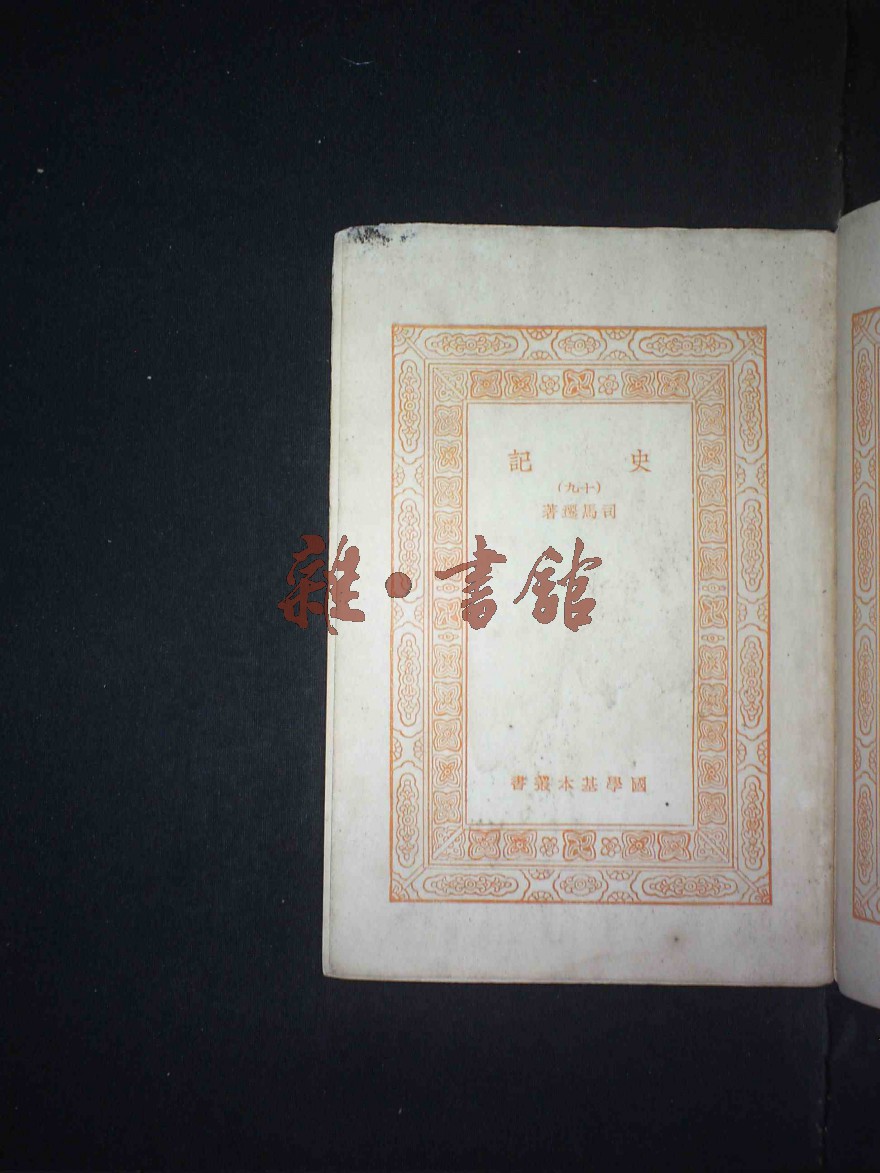 史記
(十九)
司馬遷著
雜·書館
國學基本叢書